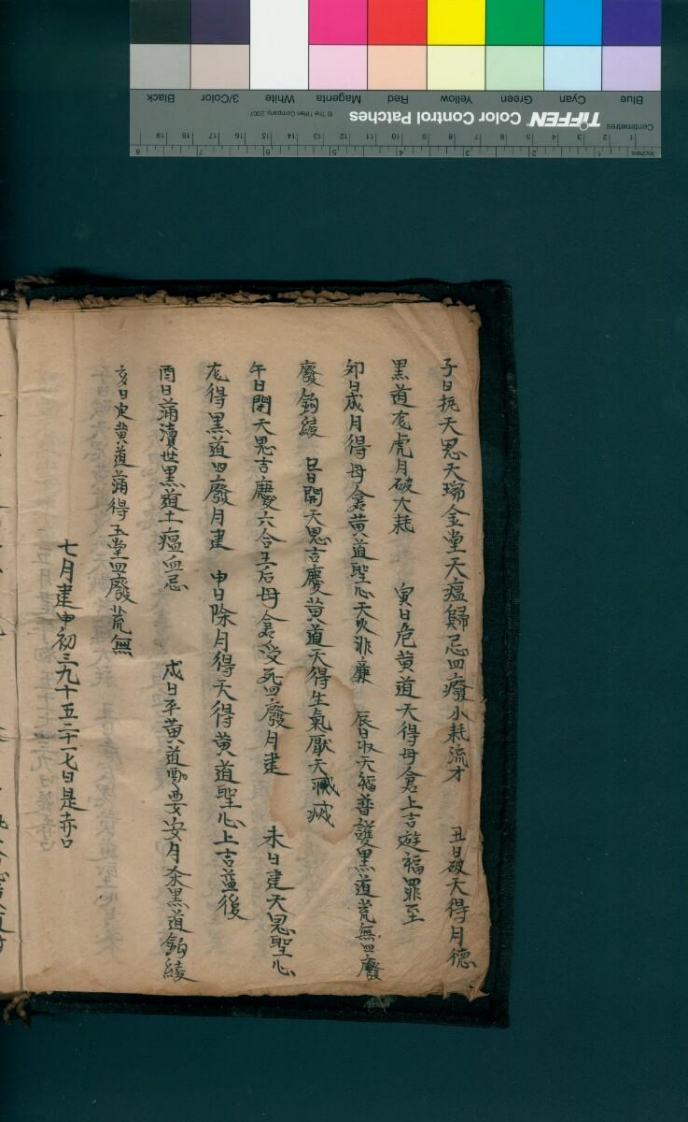 子日执天恩天瑞金堂天瘟歸忌四癈小耗流才 丑日破天得月德
黑道尨虎月破大耗 寅日危黄道天得母倉上吉遊禍罪至
卯日成月得母倉黄道聖心天火非廉 辰日收天福普護黑道荒無四癈
癈鈎綾 巳日開天恩吉慶黄道天得生氣厭天滅
午日閉天恩吉慶六合玉后母倉受死四癈月建 未日建天恩聖心
尨得黑道四癈月建 申日除月得天得黄道聖心上吉益後
酉日滿瀆世黑道土瘟血忌 戌日平黄道要安月杀黑道鈎綾
亥日定黄道滿得玉堂四廢荒無
七月建申初三九十五二十一七日是赤口
Blue Cyan Green Yellow Red Magenta White 3/Color Black
TIFFEN Color Control Patches © The Tiffen Company, 2007
Centimetres 1 2 3 4 5 6 7 8 9 10 11 12 13 14 15 16 17 18 19
Inches 1 2 3 4 5 6 7 8